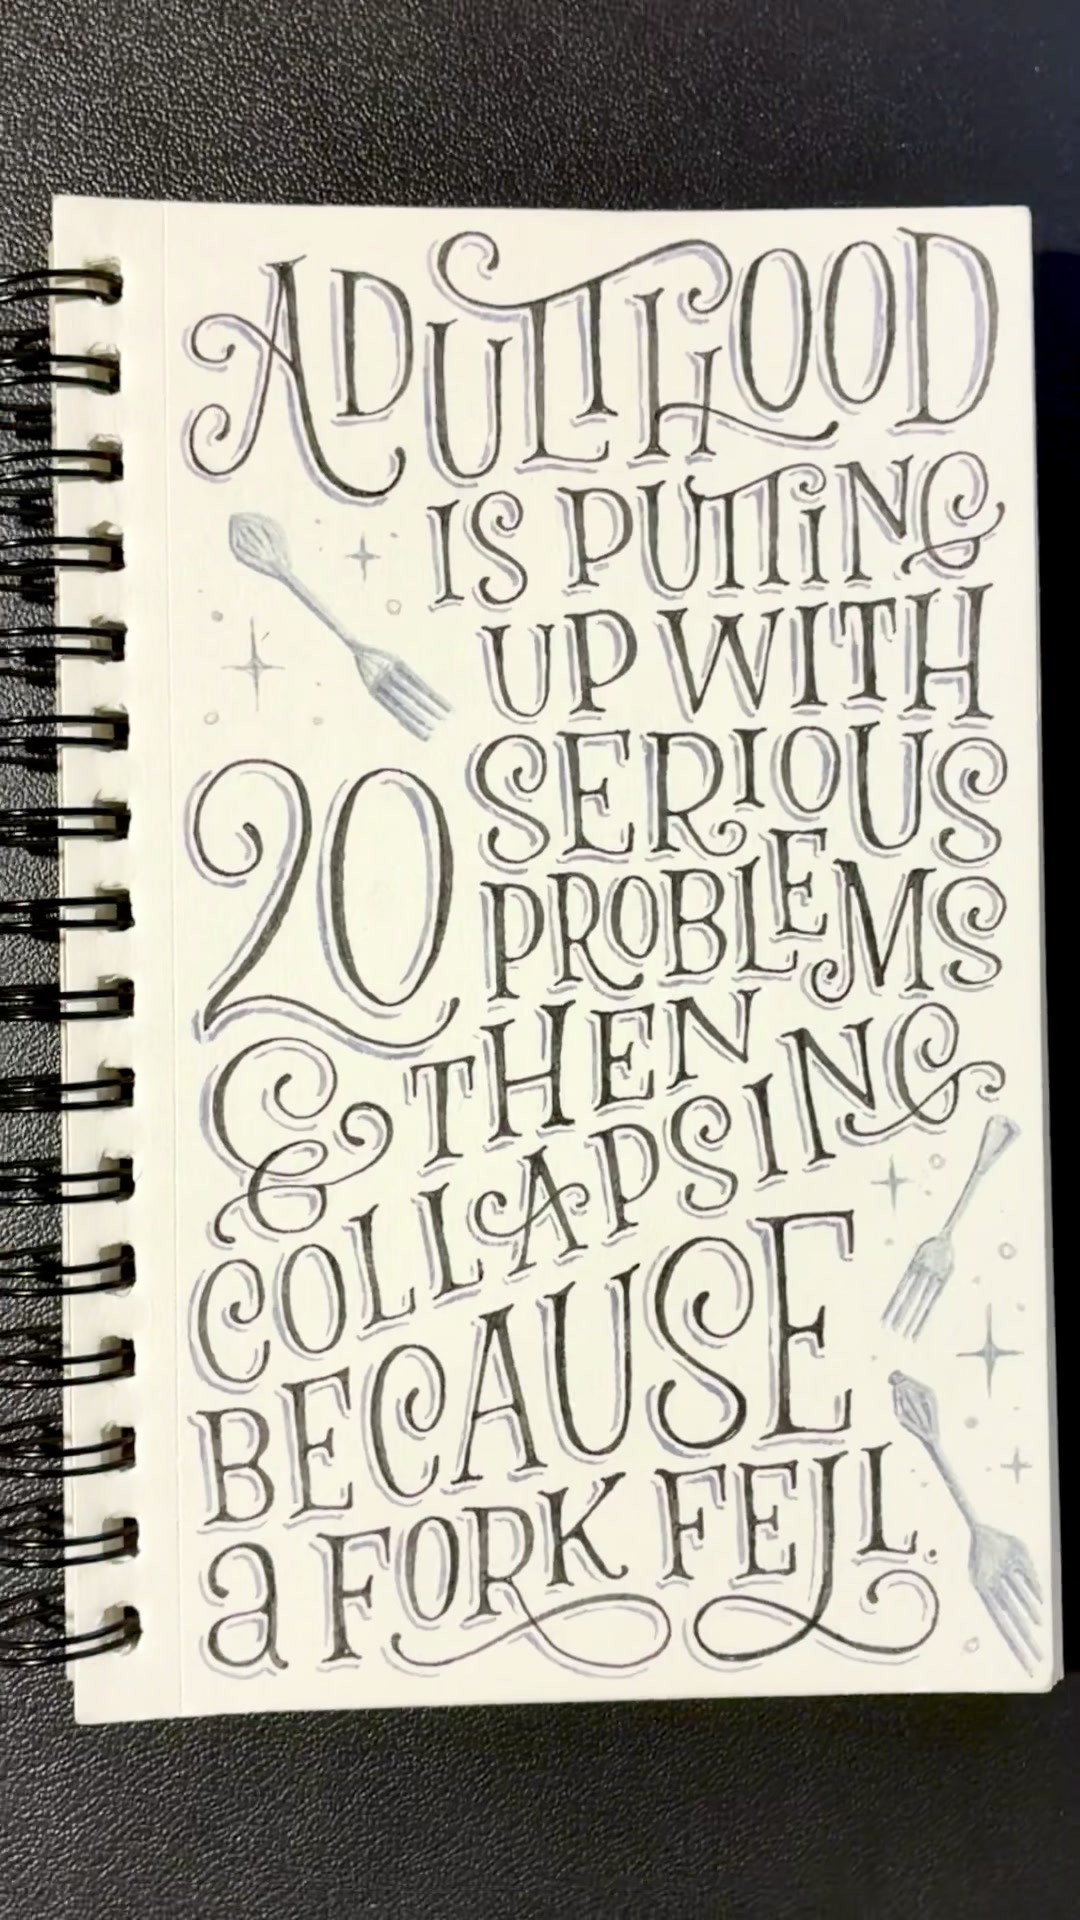 ADULTHOOD
IS PUTTING
UP WITH
20 SERIOUS
PROBLEMS
& THEN
COLLAPSING
BECAUSE
a FORK FELL.